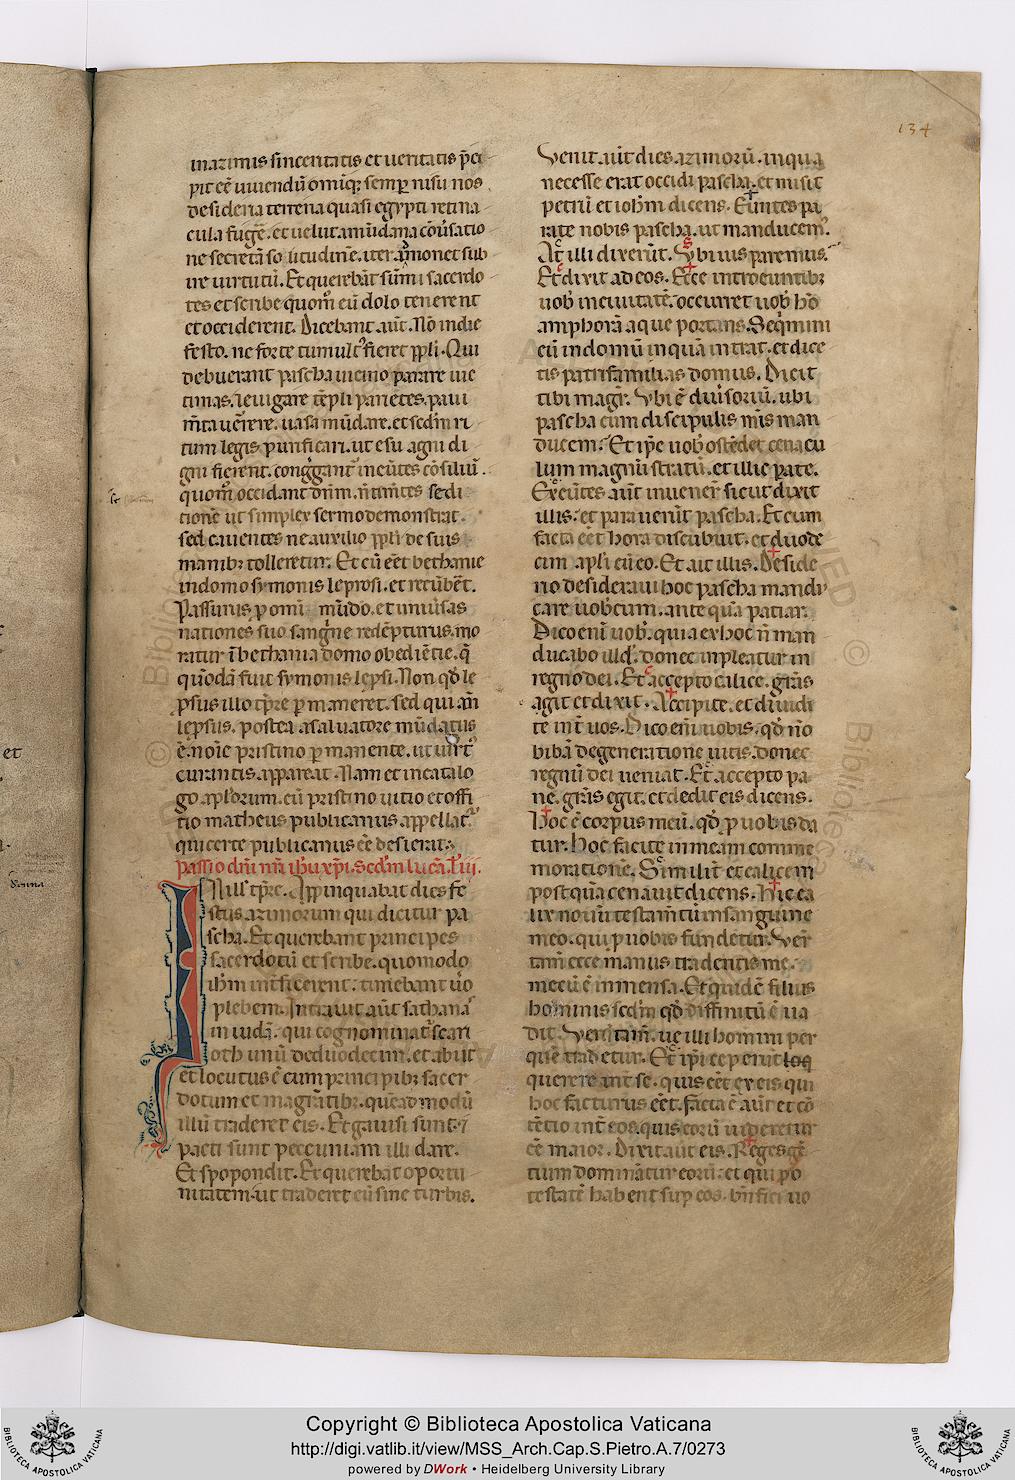 134
in azimis sinceritatis et ueritatis p̄ci
pit eē̄ uiuendū omiq; semp̱ nisu nos
desideria terrena quasi egypti retina
cula fugē̄. et uelut amūdana cōūsatio
ne secretā solitudinē. iter āmonet sub
ire uirtutū. Et querebāt sūmi sacerdo
tes et scribe quom̄ eū dolo tenerent
et occiderent. Dicebant aūt. Nō in die
festo. ne forte tumult᷒ fieret ppl̄i. Qui
debuerant pascha uicino parare uic
timas. leuigare tēpli parietes. paui
m̄ta uērere. uasa mūdare. et scd̄m ri
tum legis purificari. ut esu agni di
gni fierent. conḡgant᷒ ineūtes cōsiliū.
quom̄ occidant dn̄m. n̄ tim̄tes sedi
tionē ut simplex sermo demonstrat.
sed cauentes ne auxilio ppl̄i de suis
manib; tolleretur. Et cū eēt bethanie
in domo symonis leprosi. et recūbēt.
Passurus p̱ omi mūdo. et uniūsas
nationes suo sang̍ne redēpturus. mo
ratur ī bethania domo obediētie. q̄
quōdā fuit symonis lep̱si. Non qd̓ le
p̱sus illo tp̄re p̱maneret. sed qui an̄
lep̱sus. postea a saluatore mūdatus
ē. noīe pristino p̱manente. ut uirt᷒
curantis appareat. Nam et in catalo
go apl̓orum. cū pristino uitio et offi
tio matheus publicanus appellat᷒.
qui certe publicanus eē desierat.
Passio dn̄i nr̄i ihū xp̄i. Scd̄m lucā.
In ill̓ tp̄re. Appinquabat dies fe
stus azimorum qui dicitur pa
scha. Et querebant principes
sacerdotū et scribe. quomodo
ihm̄ int̓ficerent: timebant ūo
plebem. Intrauit aūt sathanas
in iudā. qui cognominat᷒ scari
oth unū de duodecim. et abiit
et locutus ē cum principib; sacer
dotum et magr̄atib;. quē ad modū
illū traderet eis. Et gauisi sunt. ⁊
pacti sunt peccuniam illi dare.
Et spopondit. Et querebat oportu
nitatem. ut traderet eū sine turbis.
Venit aūt dies azimorū. in qua
necesse erat occidi pascha. et misit
petrū et ioh̄m dicens. Euntes pa
rate nobis pascha. ut manducem᷒.
At illi dixerūt. Vbi uis paremus.
Et dixit ad eos. Ecce introeuntib;
uob̓ in ciuitatē. occurret uob̓ hō
amphorā aque portans. Seq̍mini
eū in domū in quā intrat. et dice
tis patrifamilias domus. Dicit
tibi magr̄. Vbi ē diūsoriū. ubi
pascha cum discipulis meis man
ducem. Et ip̄e uob̓ ostēdet cenacu
lum magnū stratū. et illic parate.
Exeūtes aūt inuener̄ sicut dixit
illis. et parauerūt pascha. Et cum
facta eēt hora discubuit. et duode
cim apl̓i cū eo. Et ait illis. Deside
rio desideraui hoc pascha mandu
care uobcum. ante quā patiar.
Dico enī uob̓. quia ex hoc n̄ man
ducabo illd̓. donec inpleatur in
regno dei. Et accepto calice. grās
agit et dixit. Accipite. et diuidi
te int̓ uos. Dico enī uobis. qd̓ nō
bibā de generatione uitis. donec
regnū dei ueniat. Et accepto pa
ne. grās egit. et dedit eis dicens.
Hoc ē corpus meū. qd̓ p̱ uobis da
tur. Hoc facite in meam comme
morationē. Similit̓ et calicem
postquā cenauit dicens. Hic ca
lix nouū testam̄tū in sanguine
meo. qui p̱ uobis fundetur. Ver̄
tam̄ ecce manus tradentis me.
mecū ē in mensa. Et quidē filius
hominis scd̄m qd̓ diffinitū ē ua
dit. Verūtam̄. ue illi homini per
quē tradetur. Et ip̄i ceperunt
querere int̓ se. quis eēt ex eis qui
hoc facturus eēt. facta ē aūt et cō
tētio int̓ eos. quis eorū uideretur
eē maior. Dixit aūt eis. Reges gē
tium dominātur eorū: et qui po
testatē habent sup̱ eos. bn̄fici uo
Copyright © Biblioteca Apostolica Vaticana
http://digi.vatlib.it/view/MSS_Arch.Cap.S.Pietro.A.7/0273
powered by DWork • Heidelberg University Library